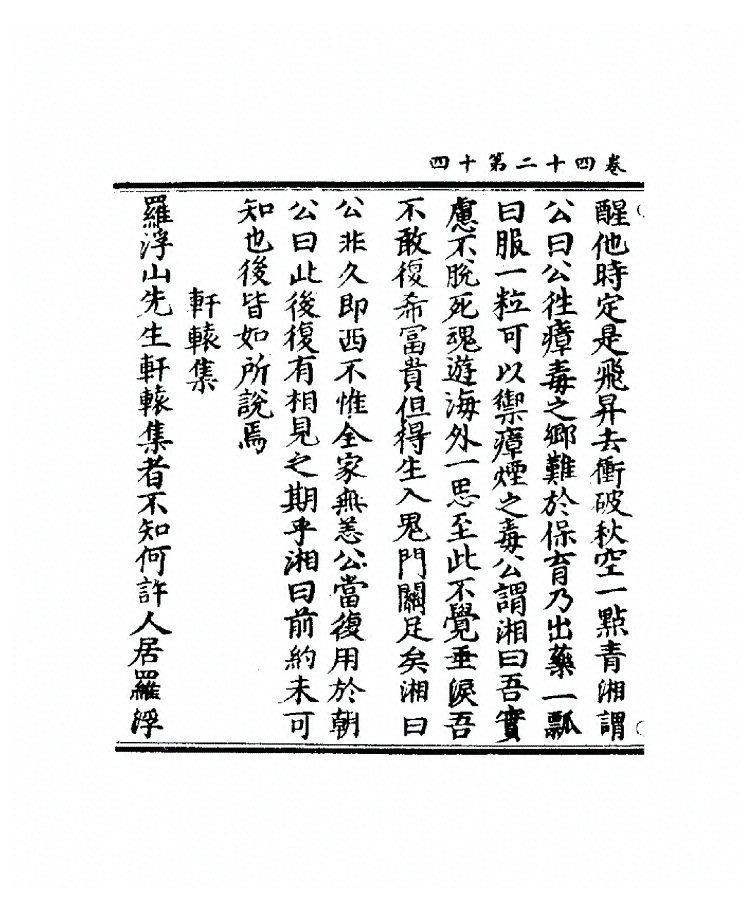 卷四十二第十四
醒他時定是飛昇去衝破秋空一點青湘謂
公曰公徃瘴毒之鄉難於保育乃出藥一瓢
曰服一粒可以禦瘴煙之毒公謂湘曰吾實
慮不脫死魂遊海外一思至此不覺垂淚吾
不敢復希冨貴但得生入鬼門關足矣湘曰
公非久即西不惟全家無恙公當復用於朝
公曰此後復有相見之期乎湘曰前約未可
知也後皆如所說焉
軒轅集
羅浮山先生軒轅集者不知何許人居羅浮